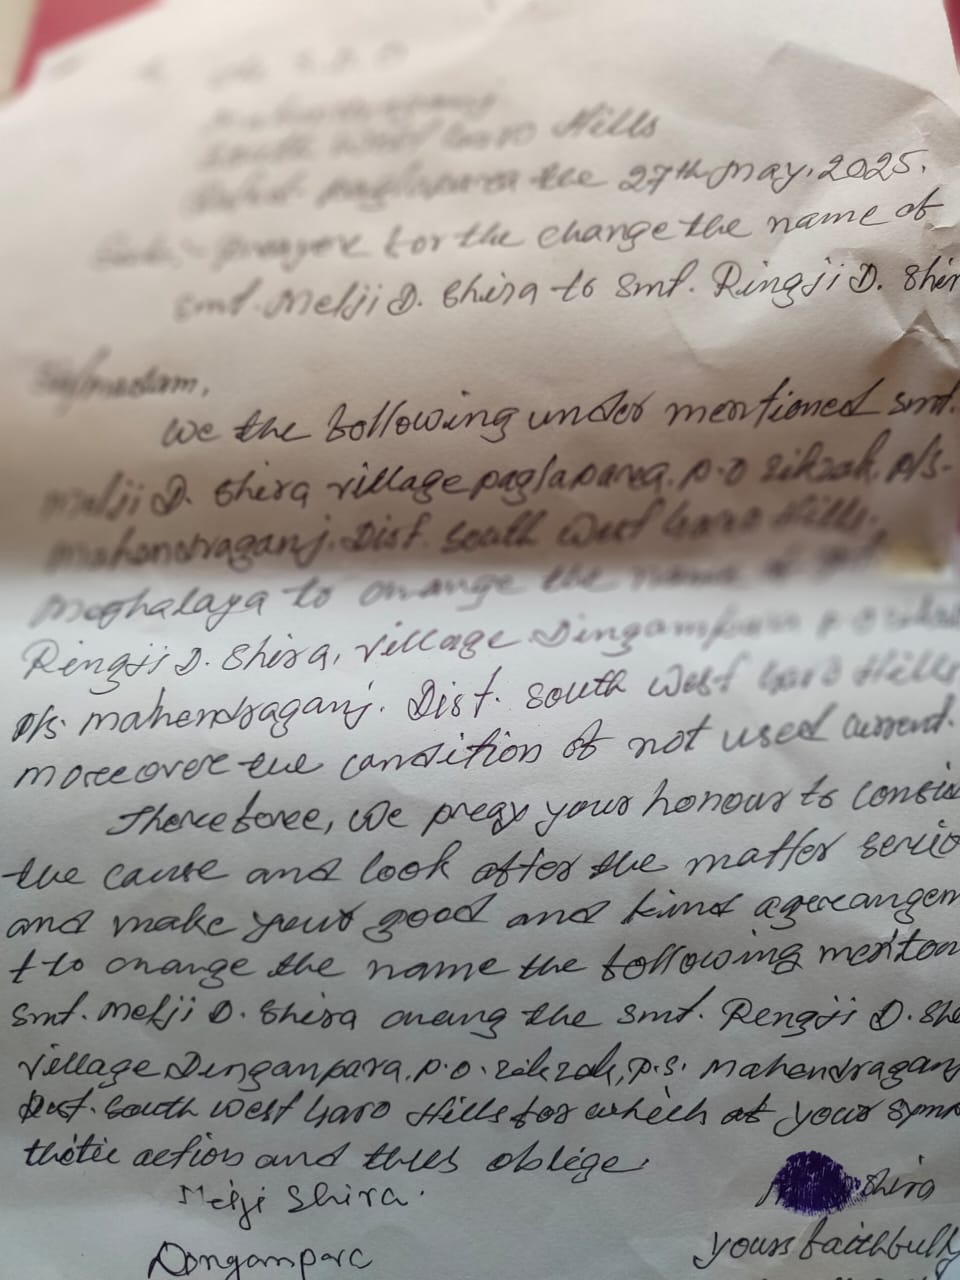 S.D.O
Mahendraganj
South West Garo Hills
Dated paglapara the 27th May, 2025.
Sub:- prayer for the change the name of
Smt. Melji D. Shira to Smt. Ringji D. Shir
Sir/madam,
We the following under mentioned Smt.
Melji D. Shira village paglapara, p.o zikzak, p/s-
Mahendraganj. Dist. South West Garo Hills,
Meghalaya to change the name of Smt
Ringji D. Shira, village Dingampara p.o zikzak
p/s. mahendraganj. Dist. South West Garo Hills
moreover the condition of not used current.
Therefore, we pray your honour to consid
the cause and look after the matter serio
and make your good and kind agreangem
t to change the name the following mention
Smt. Melji D. Shira chang the Smt. Rengji D. Sh
village Dinganpara, p.o. zikzak, p.s. Mahendragan
Dist. South West Garo Hills for which at your symp
thetic action and thus oblige.
Melji Shira. Shira
yours faithfully
Donganpara